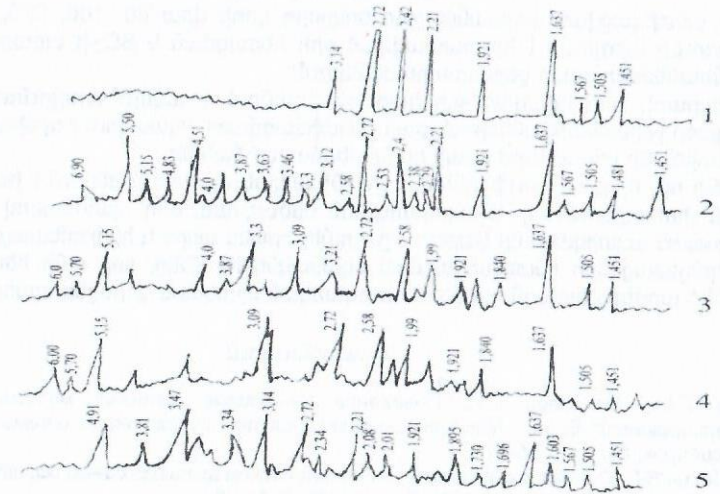 3,14 2,72 2,42 2,21 1,921 1,637 1,567 1,505 1,451
1
6,90 5,50 5,15 4,83 4,51 4,0 3,67 3,63 3,46 3,3 3,12 2,58 2,72 2,53 2,4 2,38 1,921 1,637 1,567 1,505 1,481 1,451
2
6,0 5,70 5,15 3,87 3,53 3,09 3,12 2,71 2,58 1,99 1,921 1,840 1,637 1,505 1,451
3
6,00 5,70 5,15 3,09 2,72 2,58 1,99 1,921 1,840 1,637 1,505 1,451
4
4,91 3,81 3,47 3,34 3,14 2,71 2,34 2,21 2,08 2,01 1,921 1,895 1,730 1,696 1,637 1,603 1,567 1,505 1,451
5